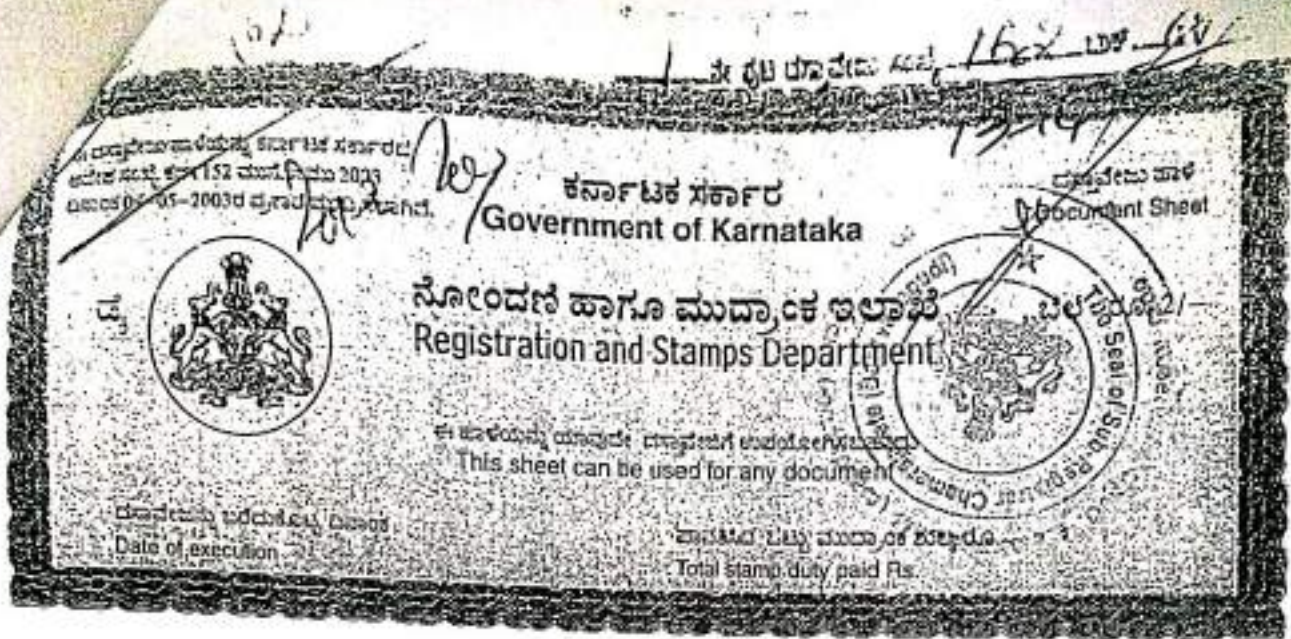 1 ನೇ ಪುಟ ದಸ್ತಾವೇಜು ಸಂಖ್ಯೆ
13-14
ಈ ದಸ್ತಾವೇಜು ಹಾಳೆಯನ್ನು ಕರ್ನಾಟಕ ಸರ್ಕಾರದ
ಆದೇಶ ಸಂಖ್ಯೆ 152 ಮುನೋಮು 2003
ದಿನಾಂಕ 05-2003ರ ಪ್ರಕಾರ ಮುದ್ರಿಸಲಾಗಿದೆ.
ಕರ್ನಾಟಕ ಸರ್ಕಾರ
Government of Karnataka
ದಸ್ತಾವೇಜು ಹಾಳೆ
Document Sheet
ನೋಂದಣಿ ಹಾಗೂ ಮುದ್ರಾಂಕ ಇಲಾಖೆ
Registration and Stamps Department
ಬೆಲೆ ರೂ. 2/-
The Seal of Sub-Registrar
ಈ ಹಾಳೆಯನ್ನು ಯಾವುದೇ ದಸ್ತಾವೇಜಿಗೆ ಉಪಯೋಗಿಸಬಹುದು
This sheet can be used for any document
ದಸ್ತಾವೇಜನ್ನು ಬರೆದುಕೊಟ್ಟ ದಿನಾಂಕ
Date of execution
ಪಾವತಿಸಿದ ಒಟ್ಟು ಮುದ್ರಾಂಕ ಶುಲ್ಕ ರೂ.
Total stamp duty paid Rs.